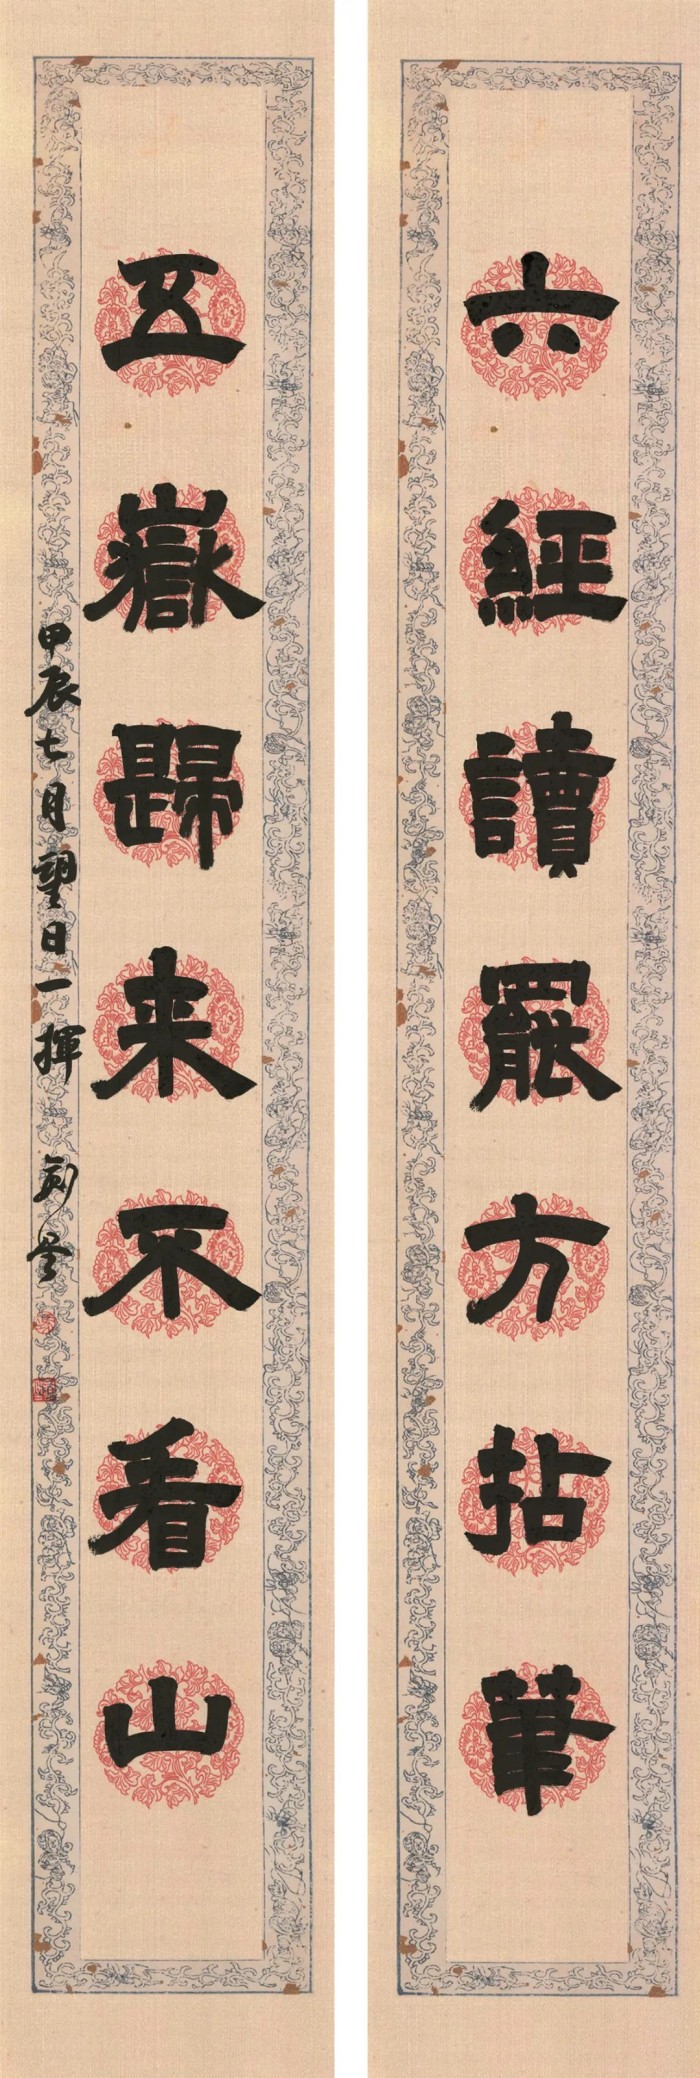 六經讀罷方拈筆
五嶽歸来不看山
甲辰七月望日一揮